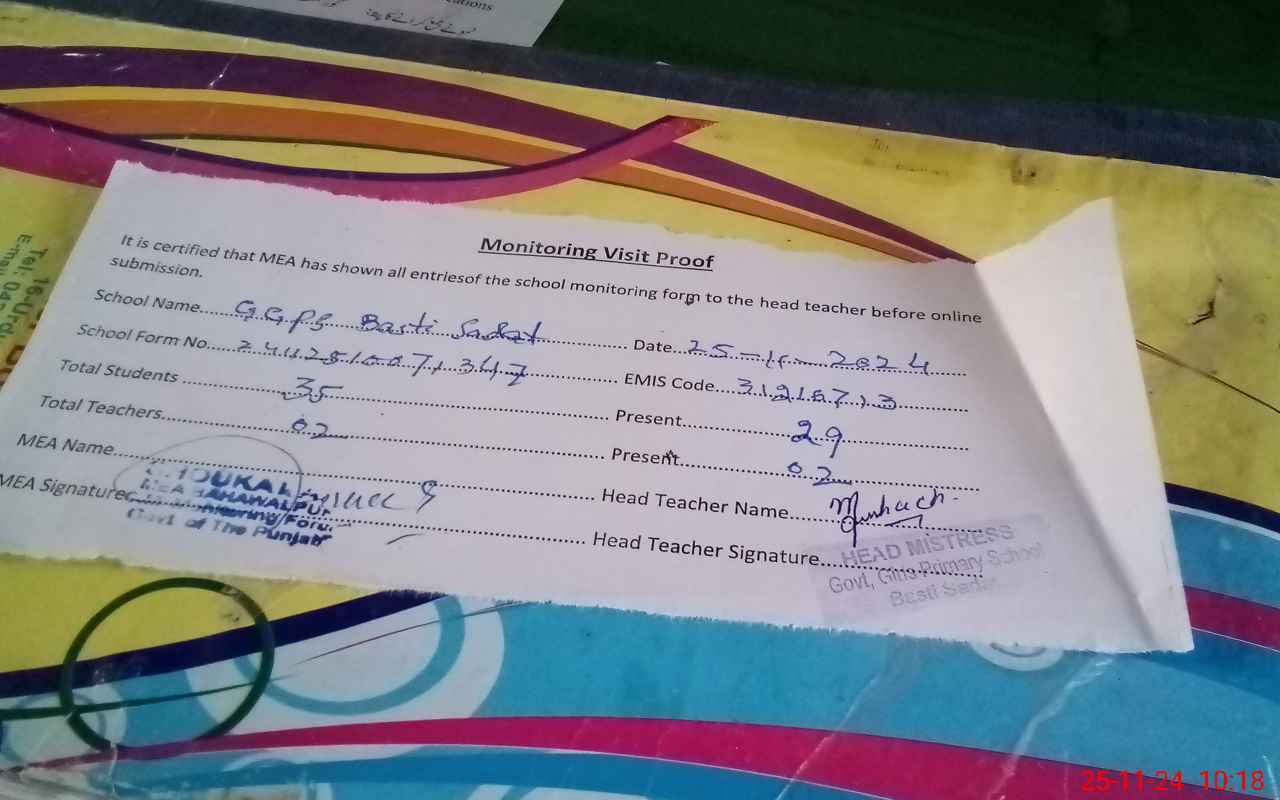 cations
Monitoring Visit Proof
It is certified that MEA has shown all entriesof the school monitoring form to the head teacher before online
submission.
School Name GGPS Basti Sadat Date 25-11-2024
School Form No. 24112510071347 EMIS Code 31216713
Total Students 35 Present 29
Total Teachers 02 Present 02
MEA Name Head Teacher Name
MEA Signature Head Teacher Signature
MEA BAHAWALPUR
Monitoring Force
Govt of The Punjab
HEAD MISTRESS
Govt, Girls Primary School
Basti
Tel:
E-mail
25-11-24 10:18